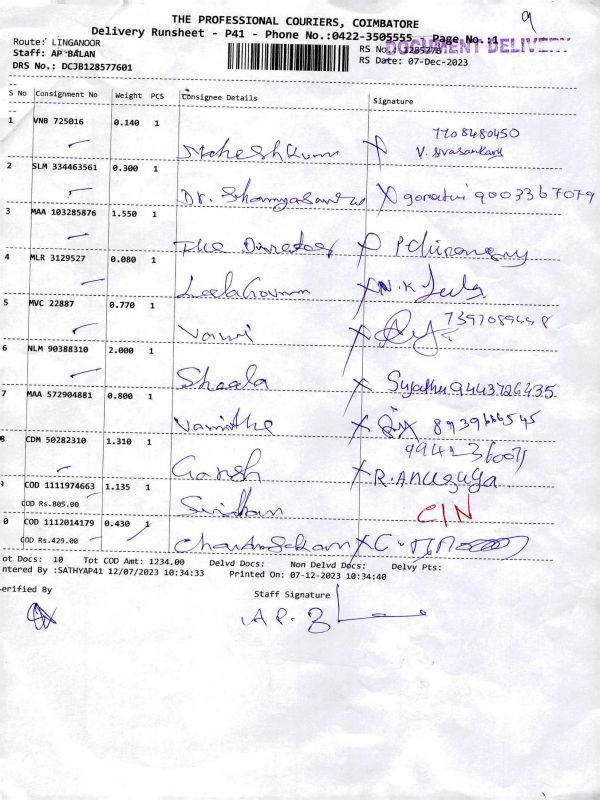 9
THE PROFESSIONAL COURIERS, COIMBATORE
Delivery Runsheet - P41 - Phone No.:0422-3505555 Page No.:1
DOCUMENT DELIVERY
Route: LINGANOOR
Staff: AP BALAN
DRS No.: DCJB128577601
RS No.:
RS Date: 07-Dec-2023
S No Consignment No Weight PCS Consignee Details Signature
1 VNB 725016 0.140 1
7708480450
Maheshkum V. Sivasankary
2 SLM 334463561 0.300 1
Dr. X gomathi 9003367079
3 MAA 103285876 1.550 1
The Director X
4 MLR 3129527 0.080 1
X N.K Leela
5 MVC 22887 0.770 1
Vani X 7397089448
6 NLM 90388310 2.000 1
Sheela X Sujatha 9443726435
7 MAA 572904881 0.800 1
Vanitha X 8939666545
8 CDM 50282310 1.310 1
Ganesh X R. Anusuya
COD 1111974663 1.135 1
COD Rs.805.00
Sridhar C/N
0 COD 1112014179 0.430 1
COD Rs.429.00
X
ot Docs: 10 Tot COD Amt: 1234.00 Delvd Docs: Non Delvd Docs: Delvy Pts:
ntered By :SATHYAP41 12/07/2023 10:34:33 Printed On: 07-12-2023 10:34:40
erified By Staff Signature
A P. B